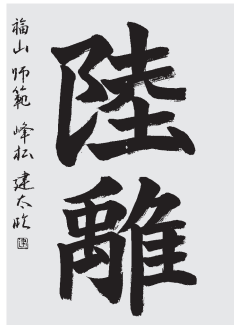 陸離
福山 師範 峰松 建太